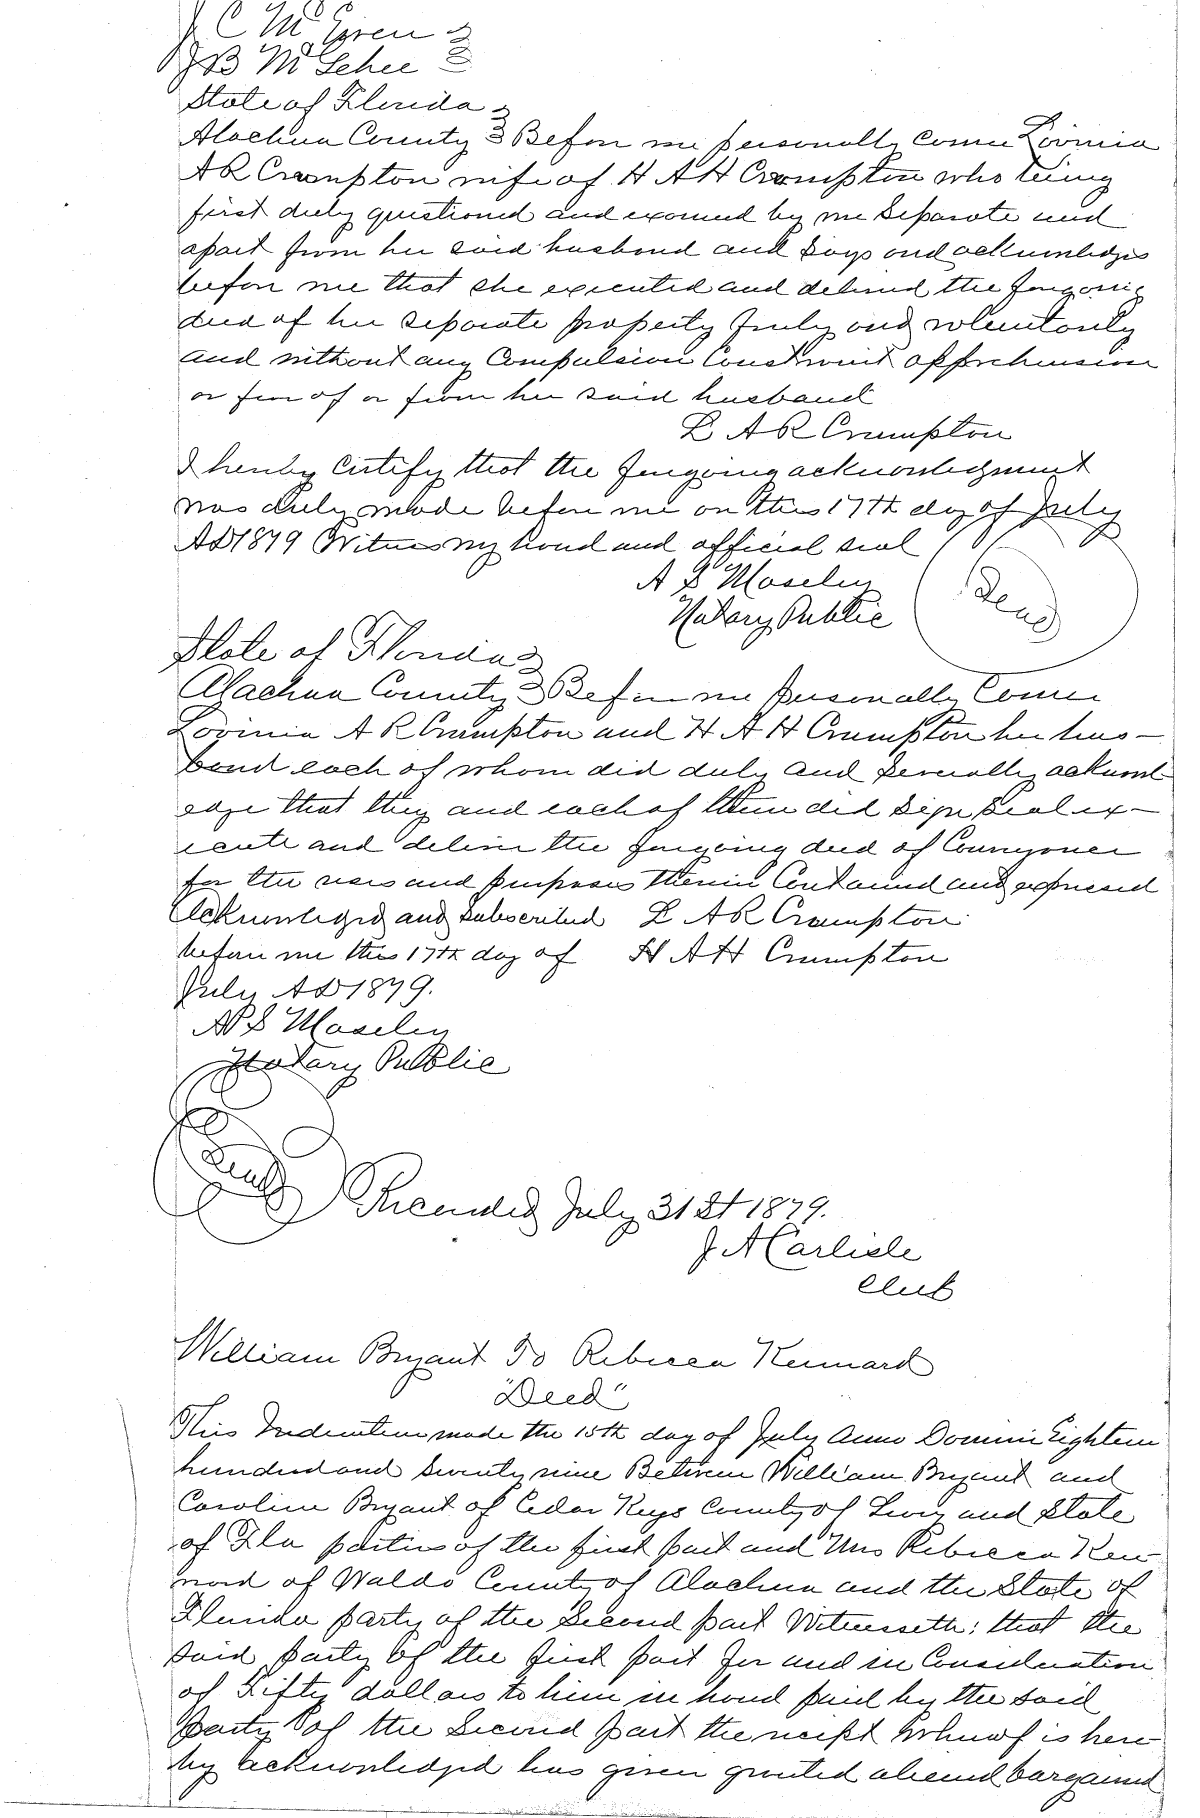 J C McGrew
J B McGehee
State of Florida
Alachua County Before me personally come Lovinia
A R Crumpton wife of H A H Crumpton who being
first duly questioned and examed by me separate and
apart from her said husband and says and acknowledges
before me that she executed and deliverd the foregoing
deed of her separate property freely and voluntarily
and without any Compulsion Constraint apprehension
or fear of or from her said husband
L A R Crumpton
I hereby certify that the foregoing acknowledgment
was duly made before me on this 17th day of July
AD 1879 Witness my hand and official seal
A S Moseley
Seal
Notary Public
State of Florida
Alachua County Before me personally Come
Lovinia A R Crumpton and H A H Crumpton her hus-
band each of whom did duly and severally acknowl-
edge that they and each of them did sign seal ex-
ecute and deliver the foregoing deed of Conveyance
for the uses and purposes therein Contained and expressed
Acknowledged and subscribed L A R Crumpton
before me this 17th day of H A H Crumpton
July AD 1879.
A S Moseley
Notary Public
Seal
Recorded July 31st 1879.
J A Carlisle
Clerk
William Bryant To Rebecca Kennard
"Deed"
This Indenture made the 15th day of July Anno Domini Eighteen
hundred and seventy nine Between William Bryant and
Caroline Bryant of Cedar Keys County of Levy and State
of Fla parties of the first part and Mrs Rebecca Ken-
nard of Waldo County of Alachua and the State of
Florida party of the Second part Witnesseth: that the
said party of the first part for and in Consideration
of Fifty dollars to him in hand paid by the said
party of the Second part the receipt whereof is here-
by acknowledged has given granted aliened bargained